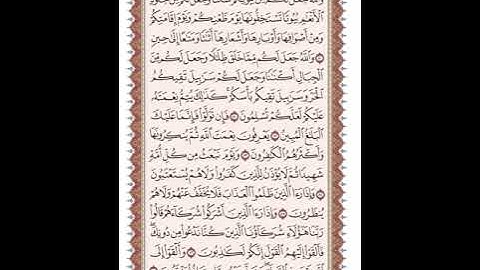 وَٱللَّهُ جَعَلَ لَكُم مِّنۢ بُيُوتِكُمْ سَكَنًا وَجَعَلَ لَكُم مِّن جُلُودِ
ٱلْأَنْعَٰمِ بُيُوتًا تَسْتَخِفُّونَهَا يَوْمَ ظَعْنِكُمْ وَيَوْمَ إِقَامَتِكُمْ
وَمِنْ أَصْوَافِهَا وَأَوْبَارِهَا وَأَشْعَارِهَآ أَثَٰثًا وَمَتَٰعًا إِلَىٰ حِينٍ
وَٱللَّهُ جَعَلَ لَكُم مِّمَّا خَلَقَ ظِلَٰلًا وَجَعَلَ لَكُم مِّنَ
ٱلْجِبَالِ أَكْنَٰنًا وَجَعَلَ لَكُمْ سَرَٰبِيلَ تَقِيكُمُ
ٱلْحَرَّ وَسَرَٰبِيلَ تَقِيكُم بَأْسَكُمْ كَذَٰلِكَ يُتِمُّ نِعْمَتَهُۥ
عَلَيْكُمْ لَعَلَّكُمْ تُسْلِمُونَ فَإِن تَوَلَّوْا۟ فَإِنَّمَا عَلَيْكَ
ٱلْبَلَٰغُ ٱلْمُبِينُ يَعْرِفُونَ نِعْمَتَ ٱللَّهِ ثُمَّ يُنكِرُونَهَا
وَأَكْثَرُهُمُ ٱلْكَٰفِرُونَ وَيَوْمَ نَبْعَثُ مِن كُلِّ أُمَّةٍ
شَهِيدًا ثُمَّ لَا يُؤْذَنُ لِلَّذِينَ كَفَرُوا۟ وَلَا هُمْ يُسْتَعْتَبُونَ
وَإِذَا رَءَا ٱلَّذِينَ ظَلَمُوا۟ ٱلْعَذَابَ فَلَا يُخَفَّفُ عَنْهُمْ وَلَا هُمْ
يُنظَرُونَ وَإِذَا رَءَا ٱلَّذِينَ أَشْرَكُوا۟ شُرَكَآءَهُمْ قَالُوا۟
رَبَّنَا هَٰٓؤُلَآءِ شُرَكَآؤُنَا ٱلَّذِينَ كُنَّا نَدْعُوا۟ مِن دُونِكَ
فَأَلْقَوْا۟ إِلَيْهِمُ ٱلْقَوْلَ إِنَّكُمْ لَكَٰذِبُونَ وَأَلْقَوْا۟ إِلَى